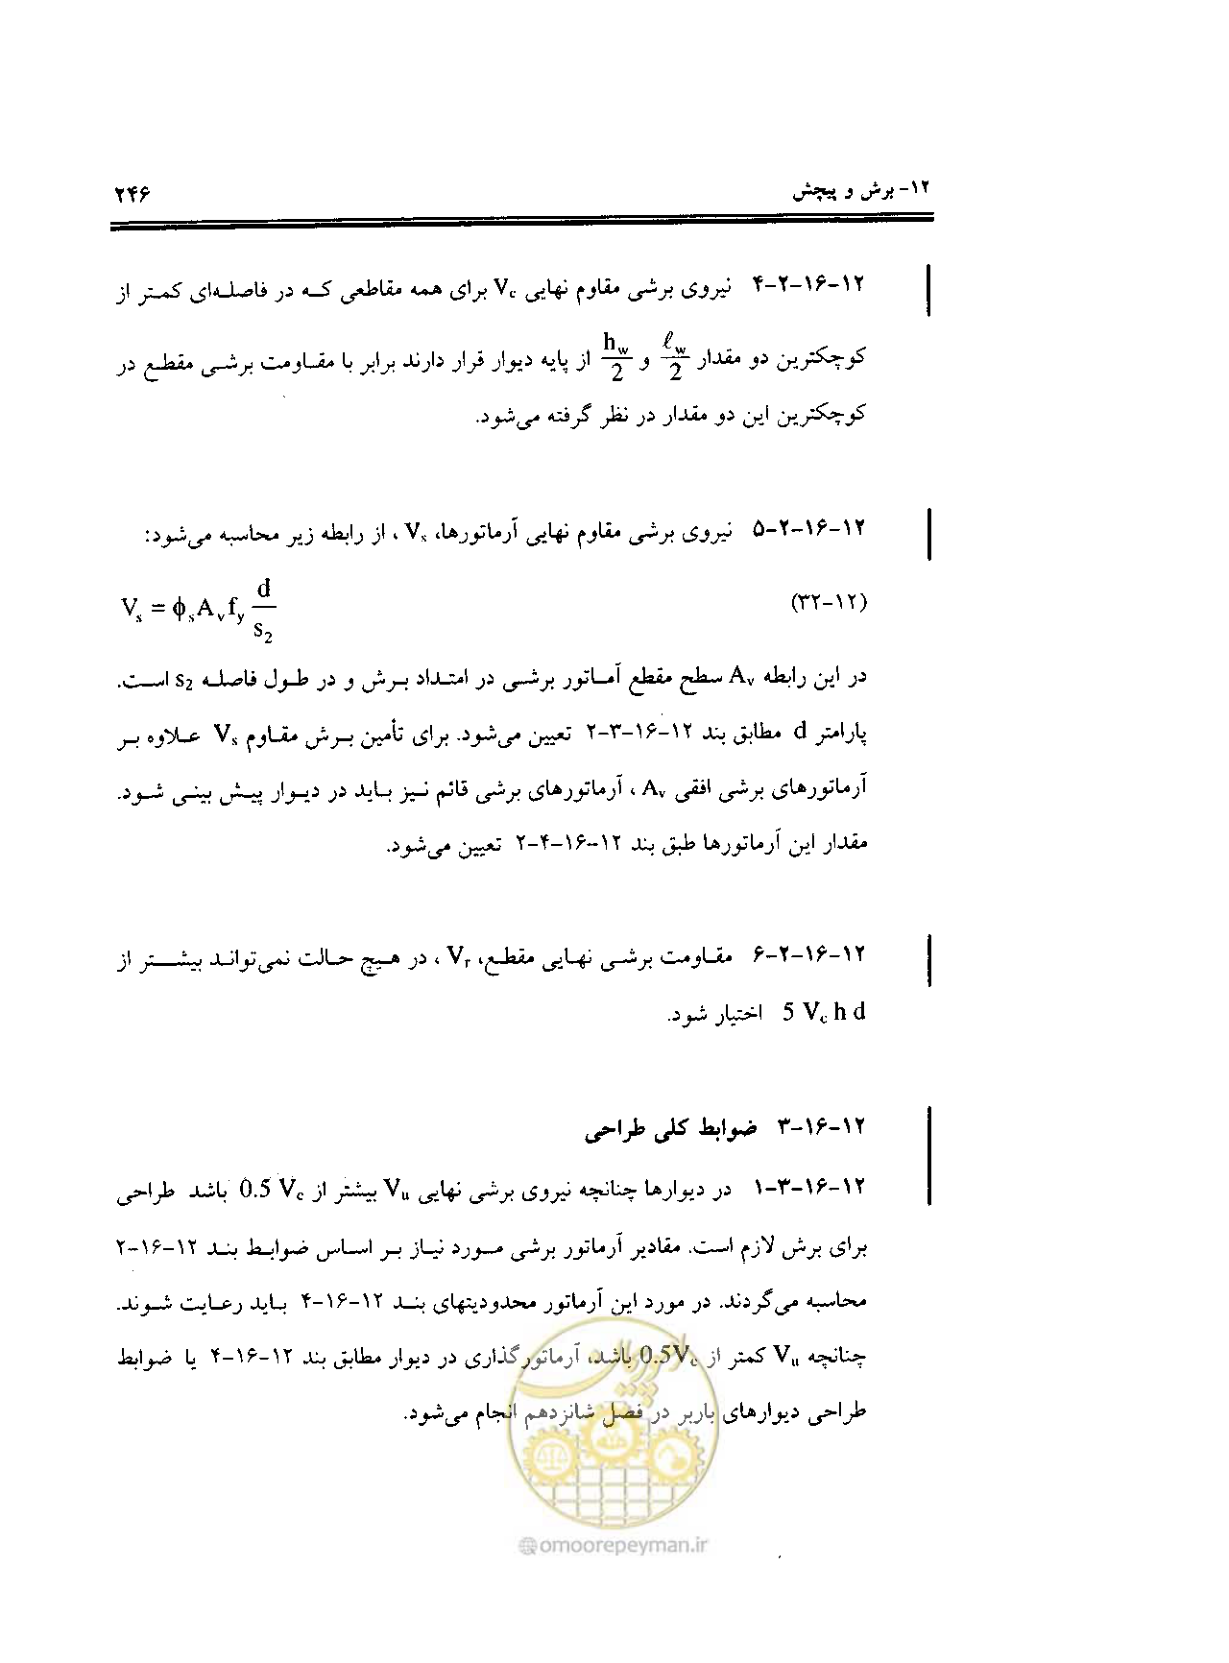 ۱۲- برش و پیچش ۲۴۶
۱۲-۱۶-۲-۴ نیروی برشی مقاوم نهایی Vc برای همه مقاطعی که در فاصله‌ای کمتر از
کوچکترین دو مقدار ℓw/2 و hw/2 از پایه دیوار قرار دارند برابر با مقاومت برشی مقطع در
کوچکترین این دو مقدار در نظر گرفته می‌شود.
۱۲-۱۶-۲-۵ نیروی برشی مقاوم نهایی آرماتورها، Vs ، از رابطه زیر محاسبه می‌شود:
(۱۲-۳۲) Vs = ϕs Av fy d/s2
در این رابطه Av سطح مقطع آماتور برشی در امتداد برش و در طول فاصله s2 است.
پارامتر d مطابق بند ۱۲-۱۶-۳-۲ تعیین می‌شود. برای تأمین برش مقاوم Vs علاوه بر
آرماتورهای برشی افقی Av ، آرماتورهای برشی قائم نیز باید در دیوار پیش بینی شود.
مقدار این آرماتورها طبق بند ۱۲-۱۶-۴-۲ تعیین می‌شود.
۱۲-۱۶-۲-۶ مقاومت برشی نهایی مقطع، Vr ، در هیچ حالت نمی‌تواند بیشتر از
5 Vc h d اختیار شود.
۱۲-۱۶-۳ ضوابط کلی طراحی
۱۲-۱۶-۳-۱ در دیوارها چنانچه نیروی برشی نهایی Vu بیشتر از 0.5 Vc باشد طراحی
برای برش لازم است. مقادیر آرماتور برشی مورد نیاز بر اساس ضوابط بند ۱۲-۱۶-۲
محاسبه می‌گردند. در مورد این آرماتور محدودیتهای بند ۱۲-۱۶-۴ باید رعایت شوند.
چنانچه Vu کمتر از 0.5Vc باشد، آرماتورگذاری در دیوار مطابق بند ۱۲-۱۶-۴ یا ضوابط
طراحی دیوارهای باربر در فصل شانزدهم انجام می‌شود.
@omoorepeyman.ir